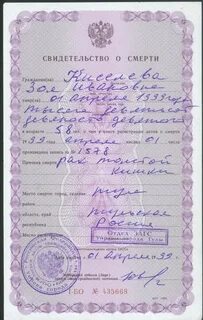 СВИДЕТЕЛЬСТВО О СМЕРТИ
Гражданин(ка) Киселева
Зоя Ивановна
умер(ла) 01 апреля 1999 года
тысяча девятьсот
девяносто девятого
в возрасте 58 лет, о чем в книге регистрации актов о смерти
19 99 года апреля месяца 01 числа
произведена запись за № 1578
Причина смерти рак толстой
кишки
Место смерти: город, селение Тула
район
область, край Тульская
республика Россия
Место регистрации Отдел ЗАГС
01 апреля 1999 г.
I-БО № 435669